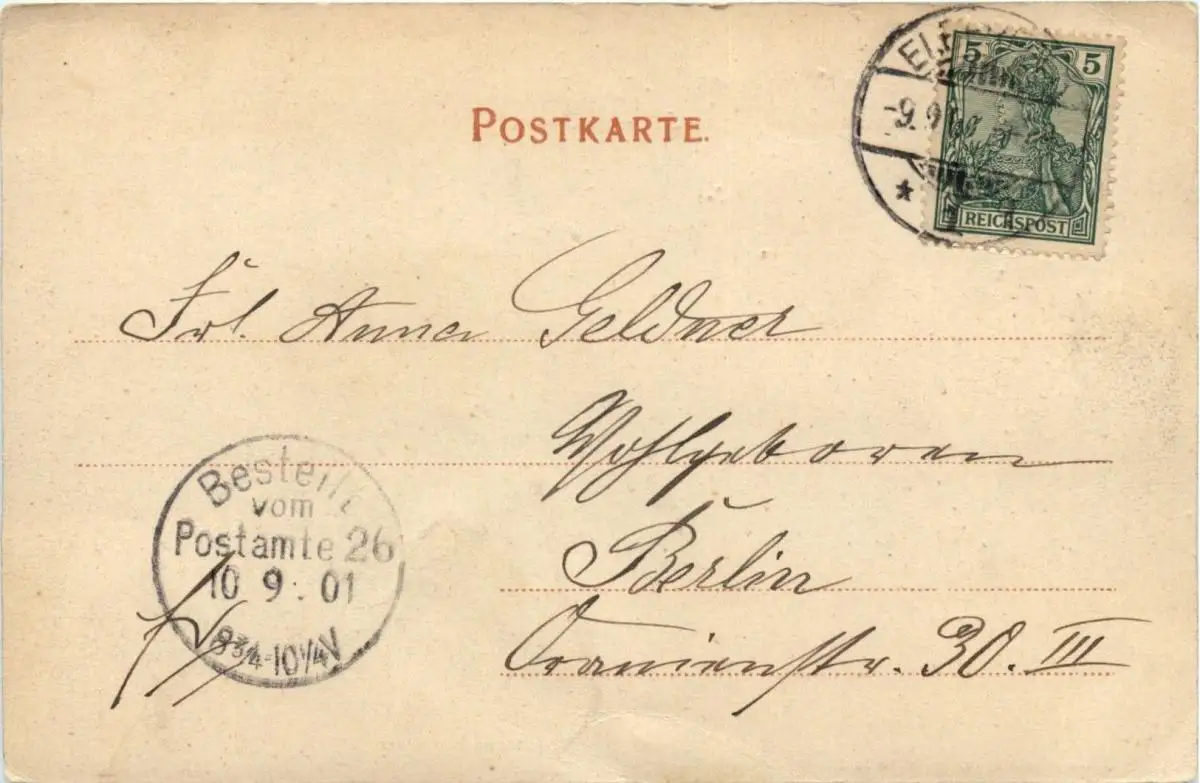 POSTKARTE.
5 5
-9. 9
REICHSPOST
Frl. Anna Geldner
Wohlgeboren
Berlin
Oranienstr. 30. III
Bestellt
vom
Postamte 26
10 9. 01
9¾-10¼V